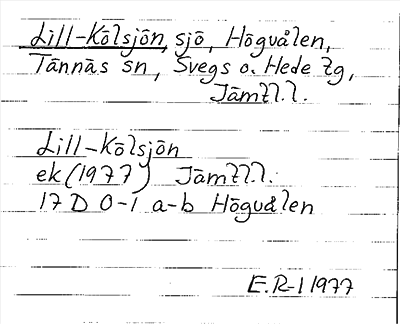 Lill-Kölsjön, sjö, Högvålen,
Tännäs sn, Svegs o. Hede tg,
Jämtl.l.
Lill-Kölsjön
ek (1977) Jämtl.l.
17 D 0-1 a-b Högvålen
E.R-l 1977